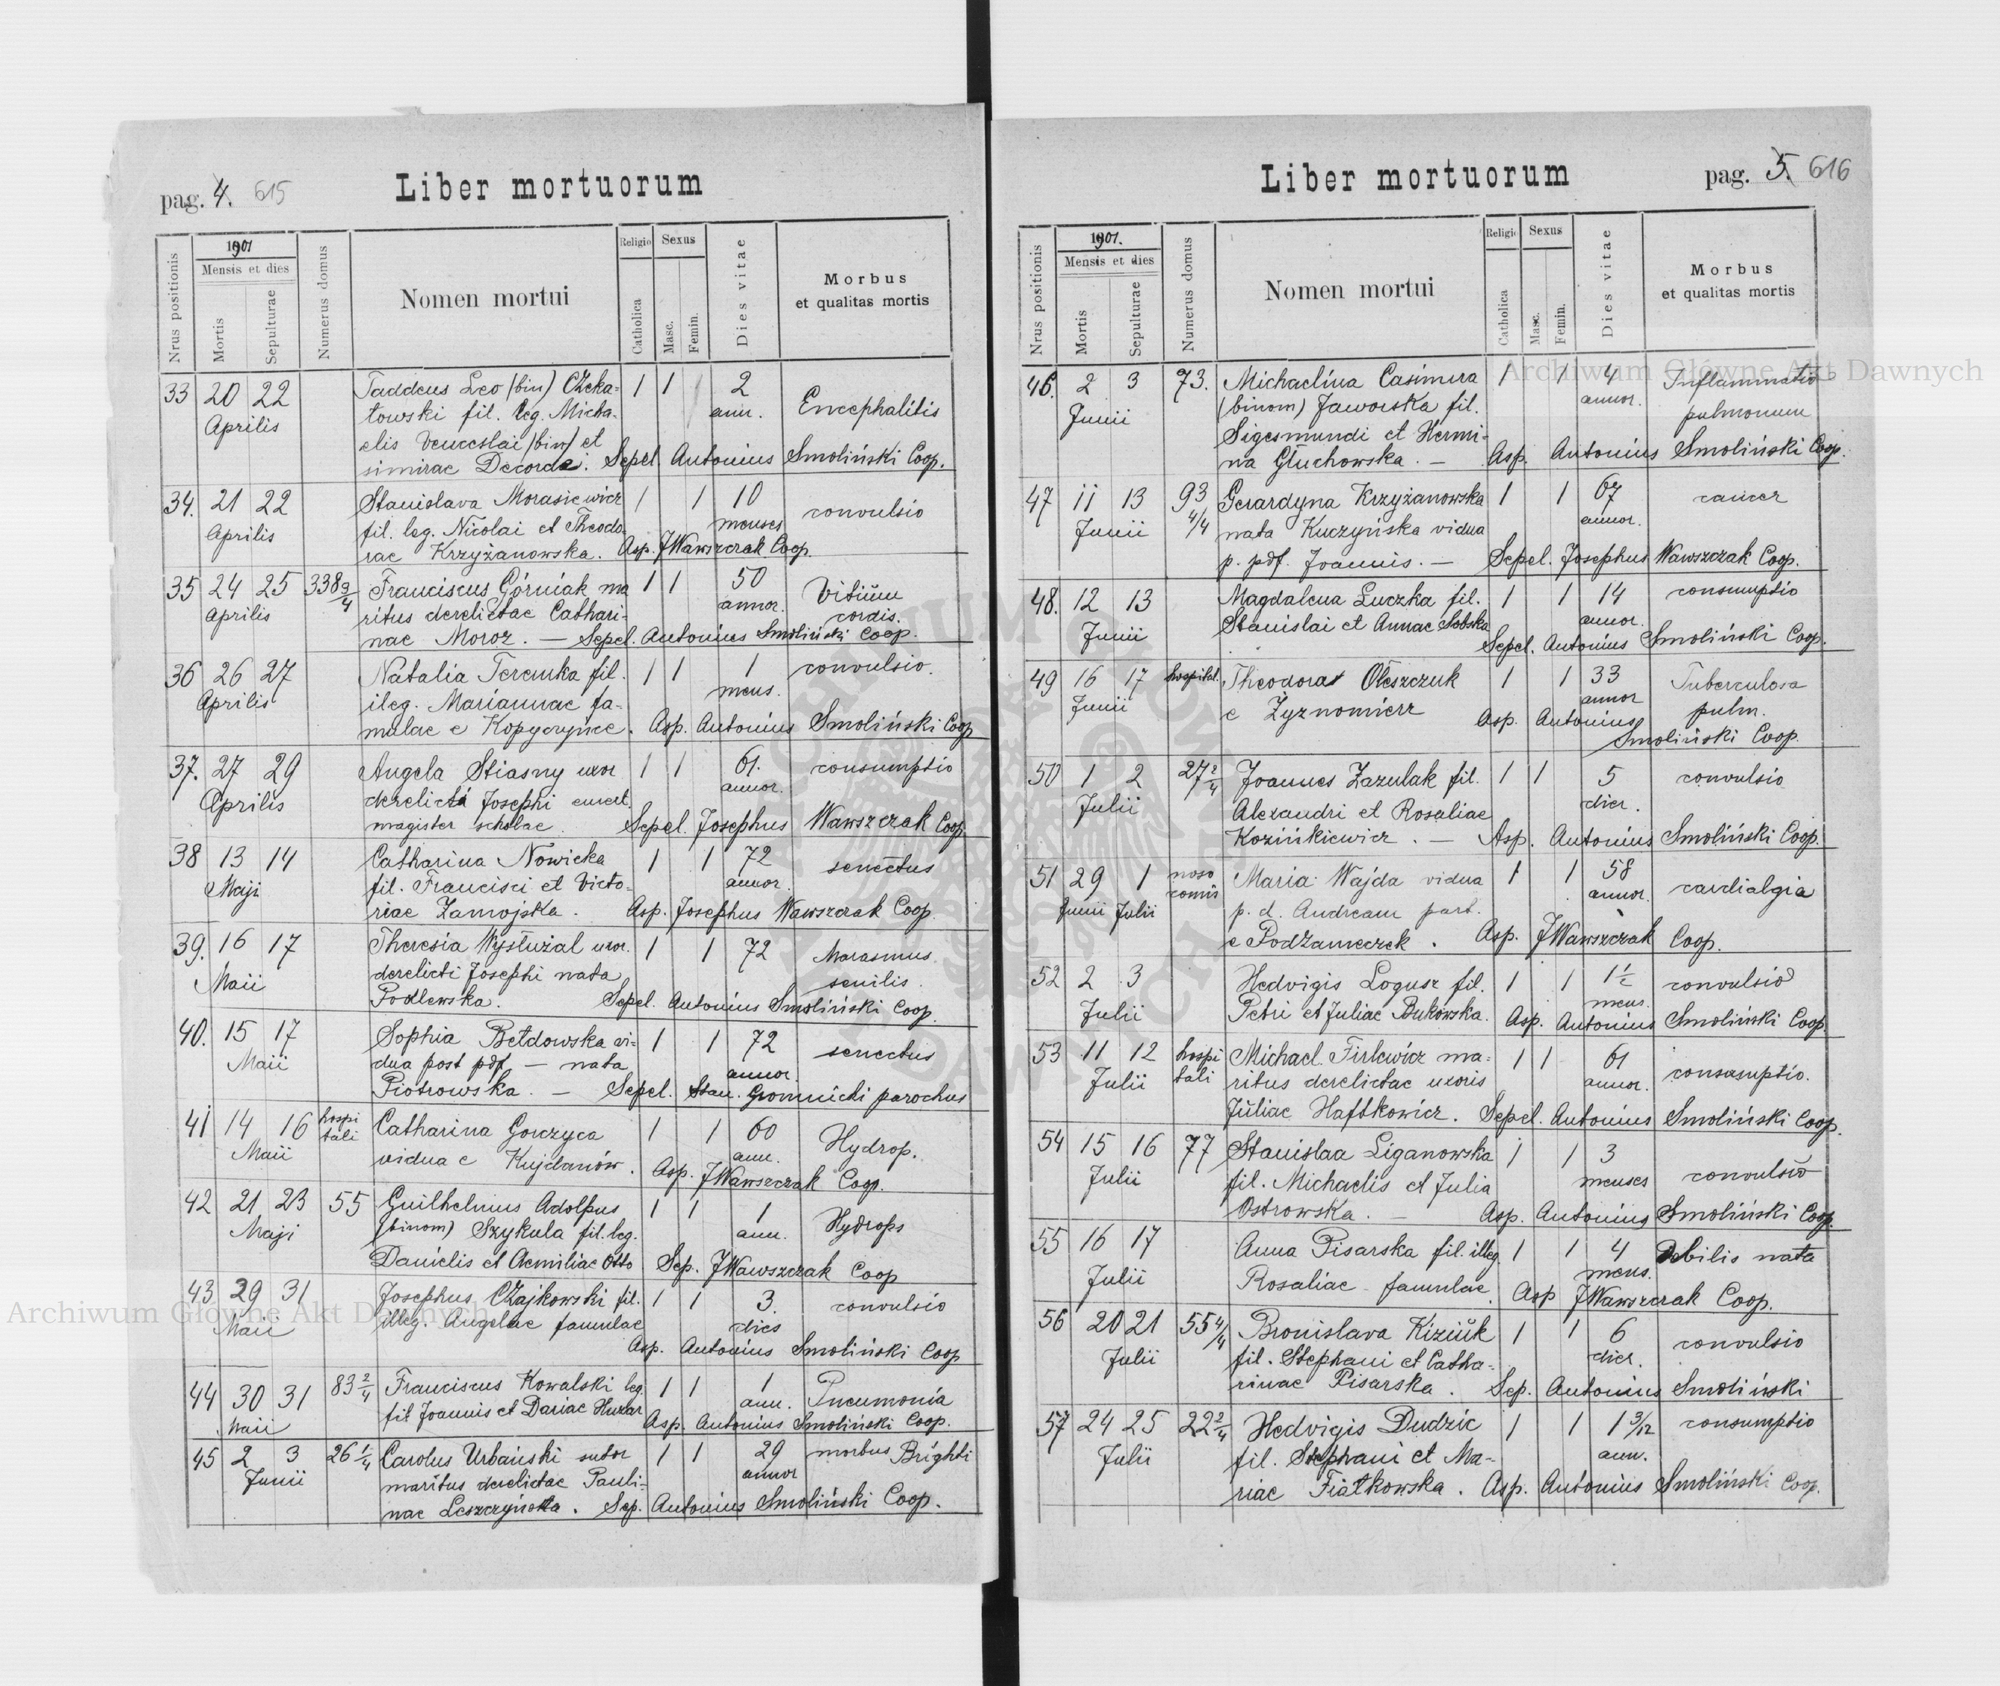 pag. 4. 615
Liber mortuorum
Nrus positionis
1901
Mensis et dies
Mortis
Sepulturae
Numerus domus
Nomen mortui
Religio
Catholica
Sexus
Masc.
Femin.
Dies vitae
Morbus
et qualitas mortis
33 20 22 Taddeus Leo (bin) Czeka= 1 1 2
Aprilis towski fil. leg. Micha- ann. Encephalitis
elis Venceslai (bin) et
simirae Decorde. Sepel. Antonius Smoliński Coop.
34. 21 22 Stanislava Morasiewicz 1 1 10
Aprilis fil. leg. Nicolai et Theodo- menses convulsio
rae Krzyżanowska. Asp. JWawszczak Coop.
35 24 25 338 3/4 Franciscus Górniak ma 1 1 50 Vitium
Aprilis ritus derelictae Cathari- annor. cordis.
nae Moroz. — Sepel. Antonius Smoliński Coop.
36 26 27 Natalia Teremka fil. 1 1 1 convulsio.
Aprilis illeg. Mariannae fa- mens.
mulae e Kopyczynce. Asp. Antonius Smoliński Coop
37. 27 29 Angela Stiasny uxor 1 1 61. consumptio
Aprilis derelicta Josephi emerit. annor.
magister scholae. Sepel. Josephus Wawszczak Coop.
38 13 14 Catharina Nowicka 1 1 72 senectus
Maji fil. Francisci et Victo- annor.
riae Zamojska. Asp. Josephus Wawszczak Coop
39. 16 17 Theresia Wysłużal uxor. 1 1 72 Marasmus
Maii derelicti Josephi nata senilis.
Podlewska. Sepel. Antonius Smoliński Coop.
40. 15 17 Sophia Bełdowska vi- 1 1 72 senectus
Maii dua post pdf — nata annor.
Piotrowska. — Sepel. Stan. Gromnicki parochus
41 14 16 hospi Catharina Gorczyca 1 1 60 Hydrop.
Maii tali vidua e Kujdanów. ann.
Asp. JWawszczak Coop.
42 21 23 55 Guilhelmus Adolpus 1 1 1 Hydrops
Maji (binom) Szykula fil. leg. ann.
Danielis et Aemiliae Otto Sep. JWawszczak Coop
43 29 31 Josephus Czajkowski fil. 1 1 3. convulsio
Maii illeg. Angelae famulae dies
Asp. Antonius Smoliński Coop
44 30 31 83 2/4 Franciscus Kowalski leg. 1 1 1 Pneumonia
Maii fil Joannis et Dariae Huzar ann.
Asp. Antonius Smoliński Coop.
45 2 3 26 1/4 Carolus Urbański sutor 1 1 29 morbus Brighti
Junii maritus derelictae Pauli- annor
nae Leszczyńska. Sep. Antonius Smoliński Coop.
Liber mortuorum
pag. 5. 616
Nrus positionis
1901.
Mensis et dies
Mortis
Sepulturae
Numerus domus
Nomen mortui
Religio
Catholica
Sexus
Masc.
Femin.
Dies vitae
Morbus
et qualitas mortis
46. 2 3 73. Michaelina Casimira 1 1 4 Inflammatio
Junii (binom) Jaworska fil. annor. pulmonum
Sigesmundi et Hermi-
na Głuchowska. — Asp. Antonius Smoliński Coop.
47 11 13 93 4/4 Gerardyna Krzyżanowska 1 1 67 cancer
Junii nata Kuczyńska vidua annor.
p. pdf. Joannis. — Sepel. Josephus Wawszczak Coop.
48. 12 13 Magdalena Luczka fil. 1 1 14 consumptio
Junii Stanislai et Annae Sobska annor.
Sepel. Antonius Smoliński Coop.
49 16 17 hospital. Theodora Oleszczuk 1 1 33 Tuberculosa
Junii e Żyznomierz annor pulm.
Asp. Antonius
Smoliński Coop.
50 1 2 27 2/4 Joannes Zazulak fil. 1 1 5 convulsio
Julii Alexandri et Rosaliae dier.
Kozińkiewicz. — Asp. Antonius Smoliński Coop.
51 29 1 noso Maria Wajda vidua 1 1 58 cardialgia
Junii Julii comis p. d. Andream part. annor.
e Podzameczek. Asp. JWawszczak Coop.
52 2 3 Hedvigis Logusz fil. 1 1 1 1/2 convulsio
Julii Petri et Juliae Bukowska. mens.
Asp. Antonius Smoliński Coop.
53 11 12 hospi Michael Firlewicz ma- 1 1 61 consumptio.
Julii tali ritus derelictae uxoris annor.
Juliae Haftkowicz. Sepel. Antonius Smoliński Coop.
54 15 16 77 Stanislaa Liganowska 1 1 3 convulsio
Julii fil. Michaelis et Julia menses
Ostrowska. — Asp. Antonius Smoliński Coop.
55 16 17 Anna Pisarska fil. illeg. 1 1 4 Debilis nata
Julii Rosaliae famulae. mens.
Asp JWawszczak Coop.
56 20 21 55 4/4 Bronislava Kiziŭk 1 1 6 convulsio
Julii fil. Stephani et Catha- dier.
rinae Pisarska. Sep. Antonius Smoliński
57 24 25 22 2/4 Hedvigis Dudzic 1 1 1 3/12 consumptio
Julii fil. Stephani et Ma- ann.
riae Fiałkowska. Asp. Antonius Smoliński Coop.
Archiwum Główne Akt Dawnych
Archiwum Główne Akt Dawnych